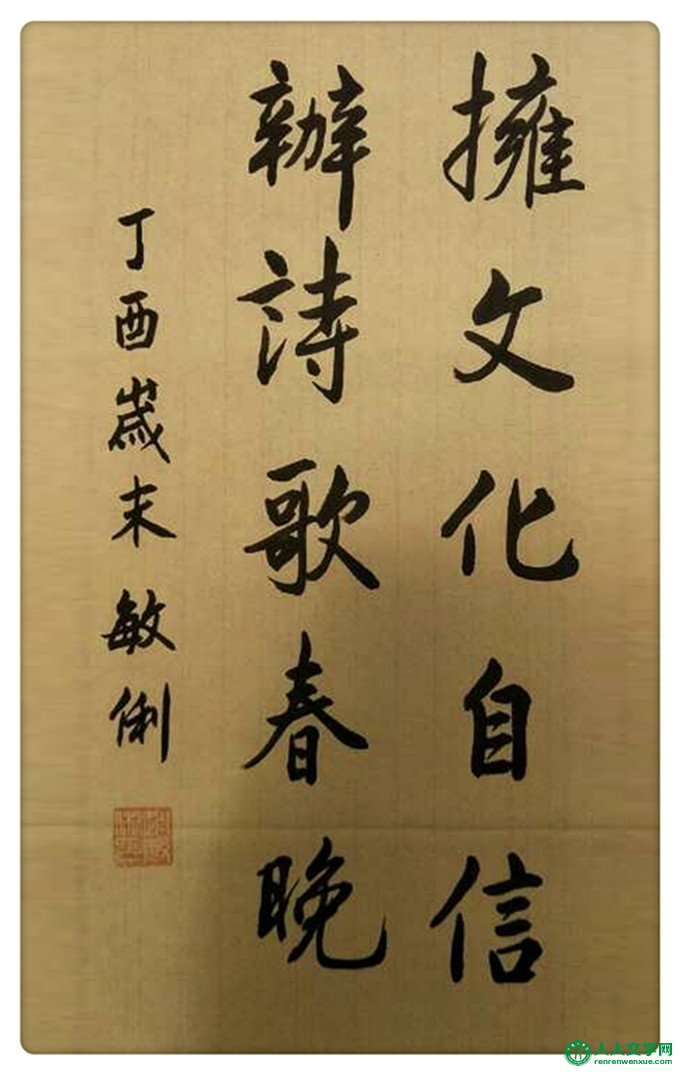 擁文化自信
辦詩歌春晚
丁酉歲末敏俐
人人文学网
renrenwenxue.com